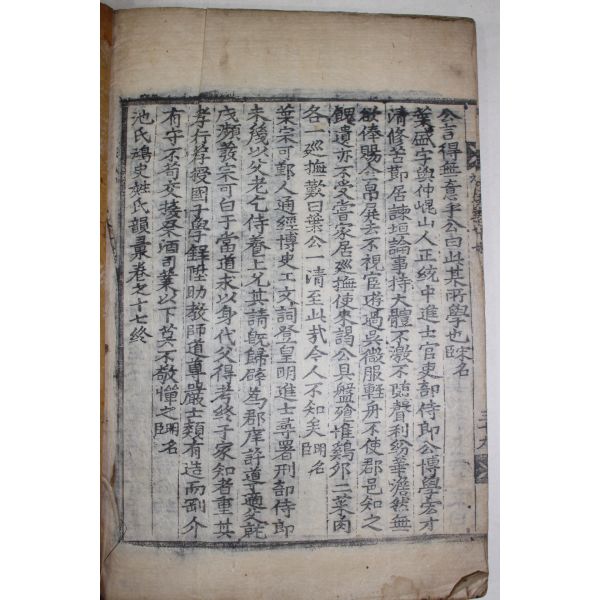 公言得無意乎公曰此某所學也明名臣
葉盛字與仲崐山人正統中進士官吏部侍郎公博學宏才
清修苦節居諫垣論事持大體不激不隨聲利紛華澹然無
欲俸賜公帛屏去不視宦轍過吳微服輕舟不使郡邑知之
餽遺亦不受嘗家居廵撫使來謁公具盤飱惟鷄卵二菜肉
各一廵撫歎曰葉公一清至此哉令人不知矣明名臣
葉宗可鄞人通經博史工文詞登皇明進士尋署刑部侍郎
未幾以父老乞侍養上允其請旣歸
父得考終于家知者重其
孝行荐授國子學錄陞助教師道尊嚴士類有造而剛介
有守不苟交接祭酒司業以下莫不敬憚之明名臣
池氏鴻史姓氏韻彙卷之十七終
三十九